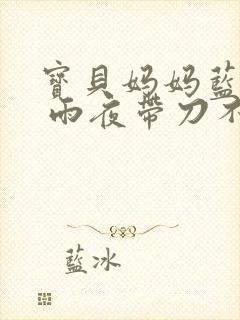 寶貝妈妈藍
雨夜帶刀不
藍冰